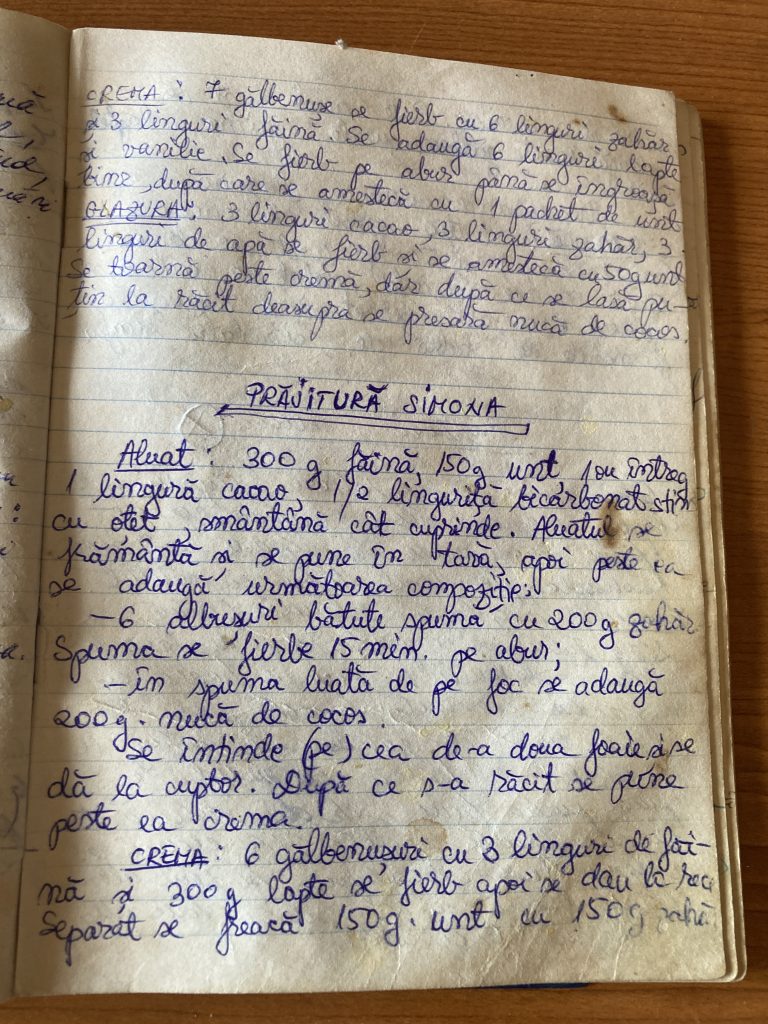 CREMA : 7 gălbenușe se fierb cu 6 linguri zahăr
și 3 linguri făină. Se adaugă 6 linguri lapte
și vanilie. Se fierb pe abur până se îngroașă
bine, după care se amestecă cu 1 pachet de unt
GLAZURA : 3 linguri cacao, 3 linguri zahăr, 3
linguri de apă se fierb și se amestecă cu 50g unt
Se toarnă peste cremă, dar după ce se lasă pu-
țin la răcit deasupra se presară nucă de cocos.
PRĂJITURĂ SIMONA
Aluat : 300 g făină, 150g unt, 1 ou întreg
1 lingură cacao, 1/2 linguriță bicarbonat stins
cu oțet, smântână cât cuprinde. Aluatul se
frământă și se pune în tavă, apoi peste ea
se adaugă următoarea compoziție:
- 6 albușuri bătute spumă cu 200g zahăr
Spuma se fierbe 15 min. pe abur;
- În spuma luată de pe foc se adaugă
200g. nucă de cocos.
Se întinde (pe) cea de-a doua foaie și se
dă la cuptor. După ce s-a răcit se pune
peste ea crema.
CREMA : 6 gălbenușuri cu 3 linguri de făi-
nă și 300g lapte se fierb apoi se dau la rece
Separat se freacă 150g. unt cu 150g zahă